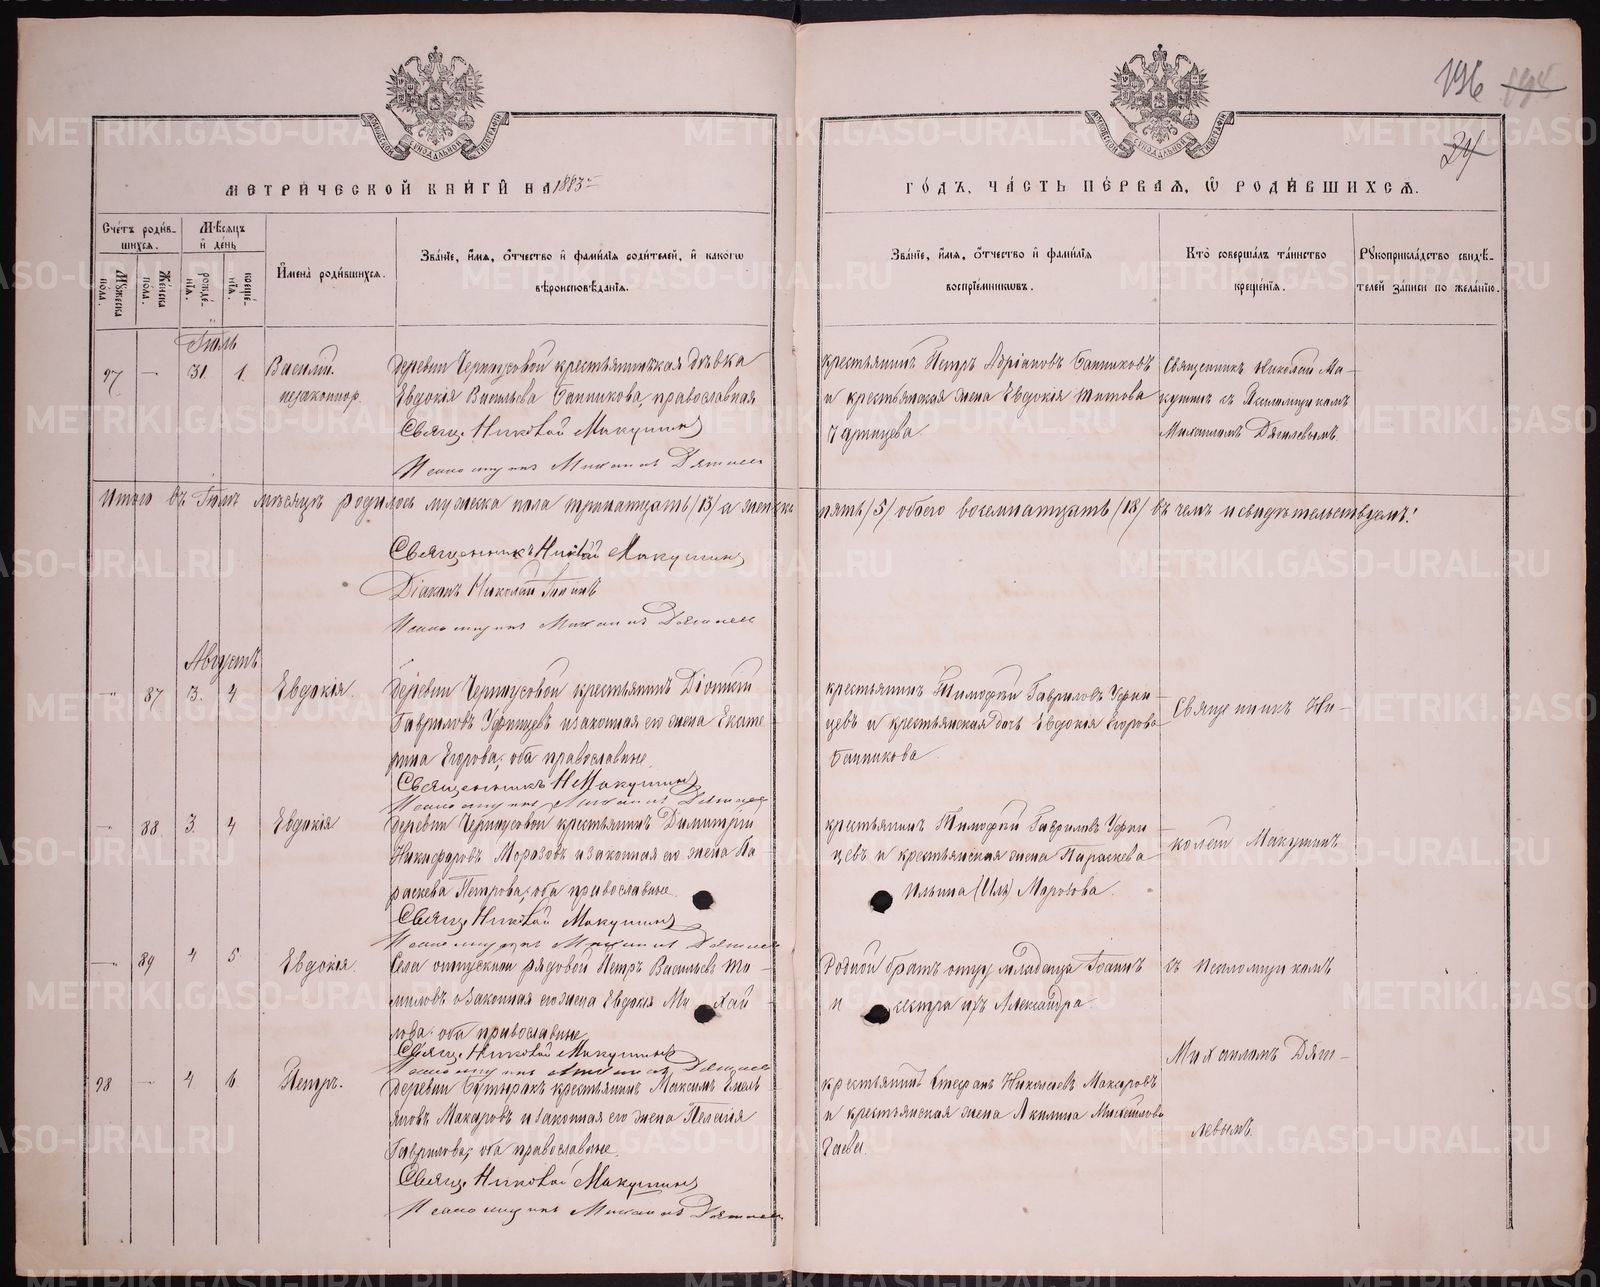 196
24
МЕТРИЧЕСКОЙ КНИГИ НА 1883 г.
ГОДЪ, ЧАСТЬ ПЕРВАЯ, Ѡ РОДИВШИХСЯ.
Счетъ родив-
шихся.
Мѣсяцъ
и день
Мужеска
пола.
Женска
пола.
рожде-
нія.
креще-
нія.
Имена родившихся.
Званіе, имя, отчество и фамилія родителей, и какого
вѣроисповѣданія.
Званіе, имя, отчество и фамилія
воспріемниковъ.
Кто совершалъ таинство
крещенія.
Рукоприкладство свидѣ-
телей записи по желанію.
Іюль
97 — 31. 1. Василій
незаконнор.
деревни Черноусовой крестьянская дѣвка
Евдокія Васильева Банникова, православная
Свящ. Николай Макушинъ
Псаломщикъ Михаилъ Дягилев
крестьянинъ Петръ Адріановъ Банниковъ
и крестьянская жена Евдокія Титова
Священникъ Николай Ма-
кушинъ съ Псаломщикомъ
Михаиломъ Дягилевымъ
Итого въ Іюлѣ мѣсяцѣ родилось мужеска пола тринатцать /13/ а женска
пять /5/ обоего восемнатцать /18/ въ чемъ и свидѣтельствуемъ:
Священникъ Николай Макушинъ
Діаконъ Николай Поповъ
Псаломщикъ Михаилъ Дягилев
Августъ
—" 87 3. 4 Евдокія.
деревни Черноусовой крестьянинъ Діонисій
Гавриловъ Уфинцевъ и законная его жена Екате
рина Егорова, оба православные.
Священникъ Н Макушинъ
Псаломщикъ Михаилъ Дягилев
крестьянинъ Тимофей Гавриловъ Уфин
цевъ и крестьянская дочь Евдокія Егорова
Банникова
Священникъ Ни-
— 88 3. 4 Евдокія
деревни Черноусовой крестьянинъ Димитрій
Никифоровъ Морозовъ и законная его жена Па
раскева Петрова, оба православные.
Свящ. Николай Макушинъ
Псаломщикъ Михаилъ Дягилев
крестьянинъ Тимофей Гавриловъ Уфин
цевъ и крестьянская жена Параскева
Ильина (Иль) Морозова.
колай Макушинъ
— 89 4 5 Евдокія.
Села отпускной рядовой Петръ Васильевъ То-
миловъ и законная его жена Евдокія Михай
лова, оба православные
Свящ. Николай Макушинъ
Псаломщикъ Михаилъ Дягилев
Родной братъ отцу младенца Іоаннъ
и сестра ихъ Александра
съ Псаломщикомъ
Михаиломъ Дяги-
98 — 4 6 Петръ.
деревни Бутырокъ крестьянинъ Максимъ Емель
яновъ Макаровъ и законная его жена Пелагія
Гаврилова, оба православные.
Свящ. Николай Макушинъ
Псаломщикъ Михаилъ Дягилев
крестьянинъ Стефанъ Николаевъ Макаровъ
и крестьянская жена Акилина Михайлова
левымъ.
METRIKI.GASO-URAL.RU